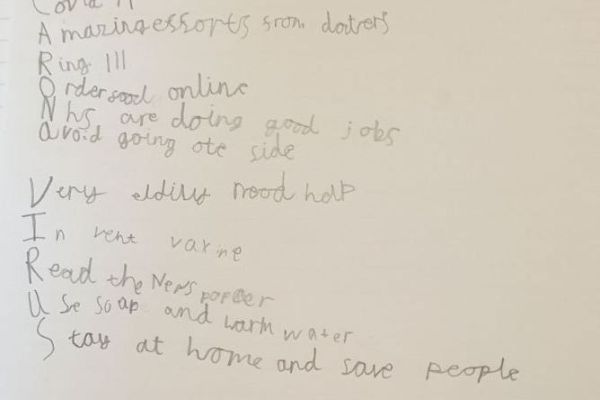 Covid 19
Amazing essorts srom doctrers
Ring 111
Order sood online
Nhs are doing good jobs
avoid going ote side
Very eldily nood help
Invent vaxine
Read the News porper
Use soap and warm water
Stay at home and save people